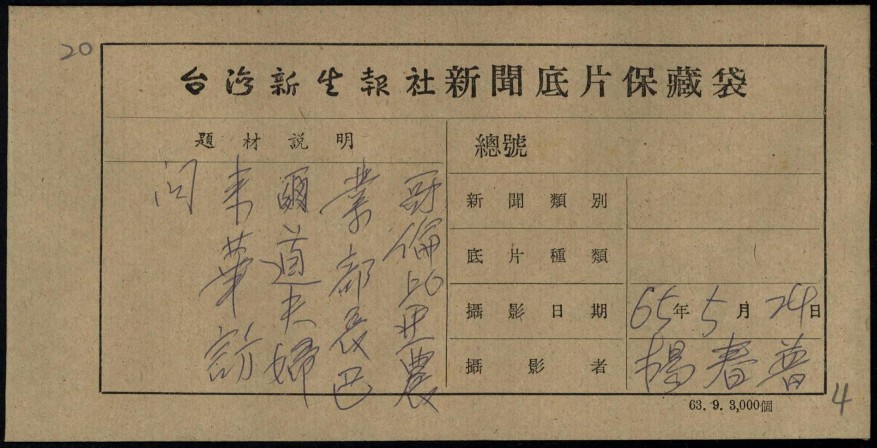 20
台灣新生報社新聞底片保藏袋
題材説明
哥倫比亞農
業部長巴
爾道夫婦
來華訪
問
總號
新聞類別
底片種類
攝影日期
65年5月24日
攝影者
楊春普
63.9.3,000個
4